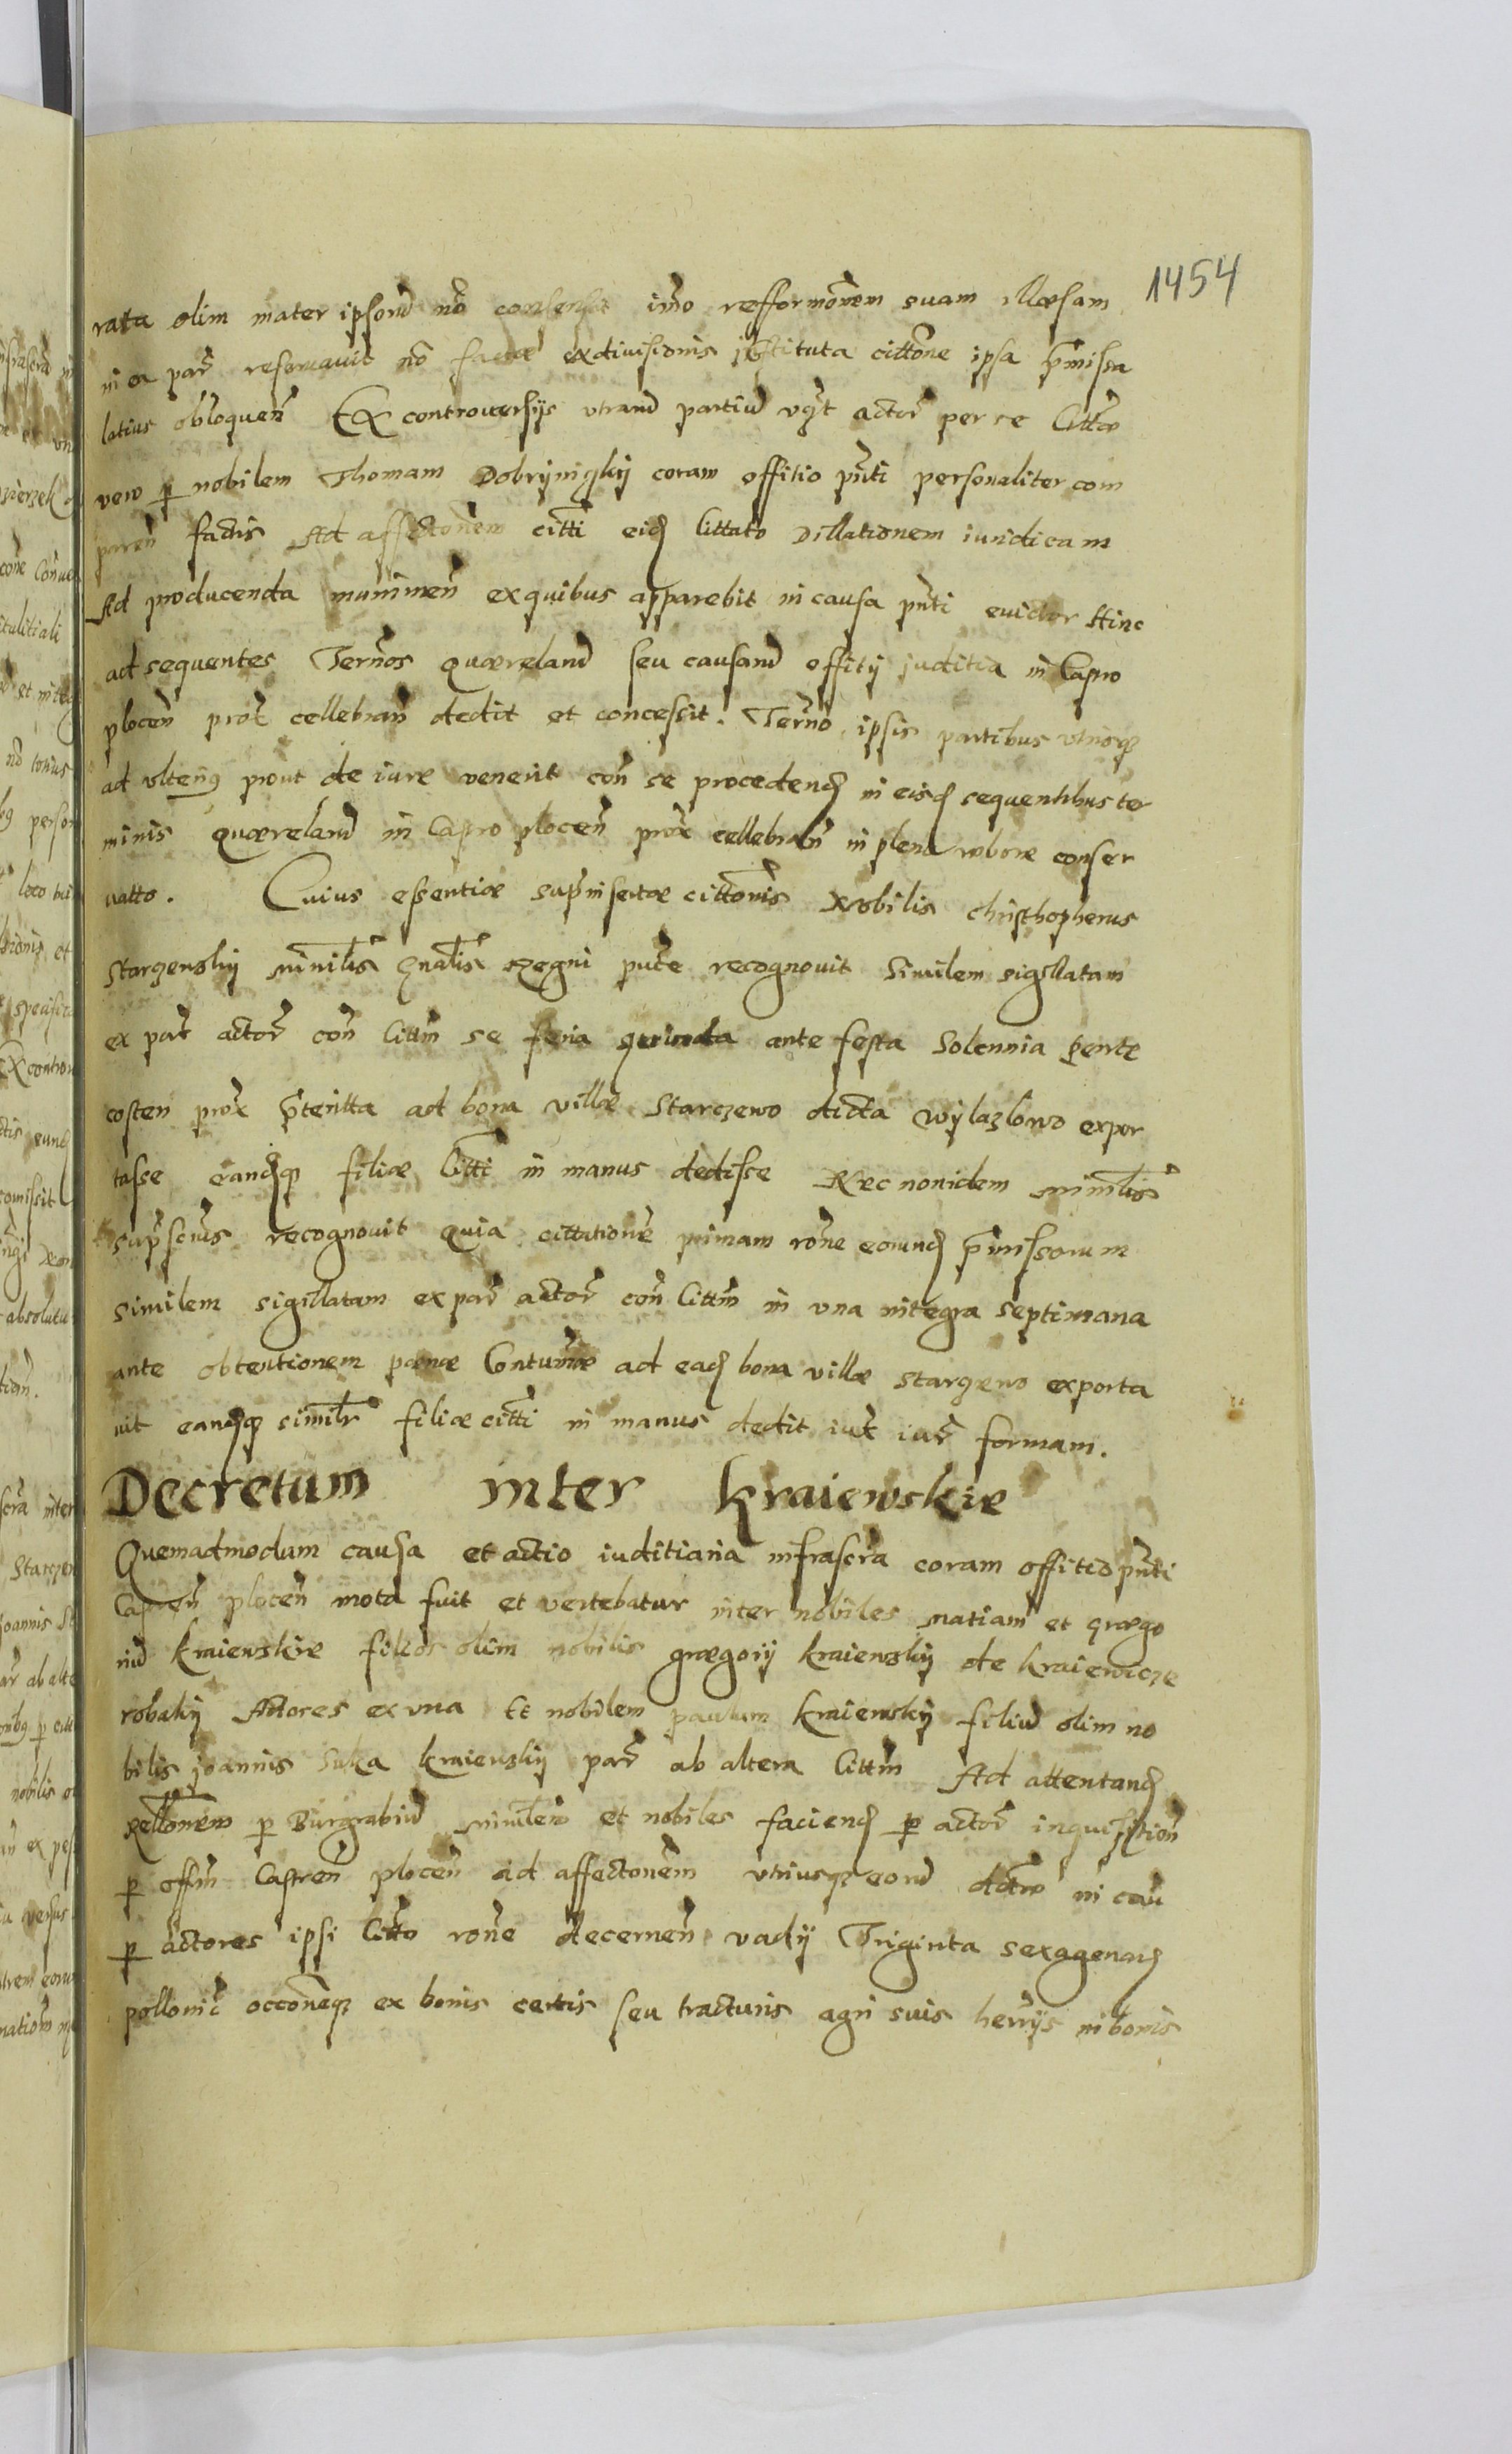 1454
rata olim mater ipsorū nō consensit imō refformōnem suam illæsam
in ea par̄ reservavit nō factæ exdivisionis instituta cittōne ipsa p̄missa
latius obloquen̄ Ex controversijs utrarū partiū vȳt actor̄ per se Citta
vero p nobilem Thomam Dobrÿnigkÿ coram offitio pn̄ti personaliter com
paren̄ factis Ad affectōnem citti eid Cittato Dillationem iuridicam
Ad producenda munimen̄ ex quibus apparebit in causa pn̄ti evidēr Hinc
ad sequentes Termōs quærelarū seu causarū offitÿ juditia in Capro
plocen̄ prox̄ cellebran̄ dedit et concessit. Termō ipsis partibus utrisqz
ad ulterius prout de iure venerit con̄ se procedend in eisd sequentibus ter
minis quærelarū in Capro plocen̄ prox̄ cellebran̄ in pleno robore conser
vatto. Cuius essentiæ supr̄inscrtæ cittōnis Nobilis christhopherus
Starzenskÿ minīlis gnālis Regni pub̄te recognovit Similem sigillatam
ex part̄ actor̄ con̄ Cittm̄ se feria quinta ante festa Solennia pente
costen prox̄ p̄teritta ad bona villæ Starczewo dicta Wÿlazlowo expor
tasse eandqz filiæ Citti in manus dedisse Nec non idem minīlis
supr̄scrus recognovit quia cittatione primam rōne eorund p̄missorum
similem sigillatam ex par̄ actor̄ con̄ Cittm̄ in una integra septimana
ante obtentionem pœnæ Contumāe ad ead bona villæ starzewo exporta
vit eandqz similr̄ filiæ citti in manus dedit iuxt̄ iur̄ formam.
Decretum inter Kraiewskie
Quemadmodum causa et actio iuditiaria infrascra coram offitio pn̄ti
Capren̄ plocen̄ mota fuit et vertebatur inter nobiles matiam et grægo
riū Kraiewskie filios olim nobilis grægorÿ Kraiewskÿ de Kraiewicze
robakÿ Actores ex una Et nobilem paulum Kraiewskÿ filiū olim no
bilis joannis Suka Kraiewskÿ par̄ ab altera Cittm̄ Ad attentand
Rellōnem p Burgrabiū minīlem et nobiles faciend p actor̄ inquisition̄
p offm̄ Castren̄ plocen̄ ad affectōnem utriusqz eorū in cau
p actores ipsi Citto rōne decernen̄ vadÿ Triginta sexagenard
pollonic̄ occōneqz ex bonis certis seu tracturis agri suis herr̄ijs in bonis